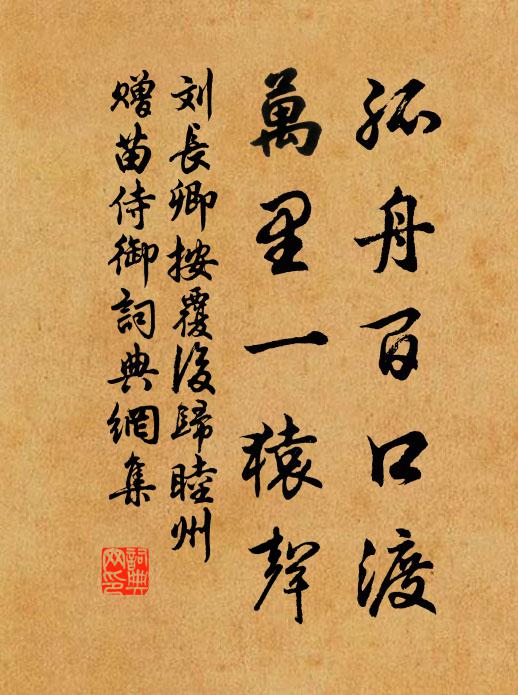 孤舟百口渡
萬里一猿聲
刘長卿按覆後歸睦州
贈苗侍御詞典網集
詞典网印